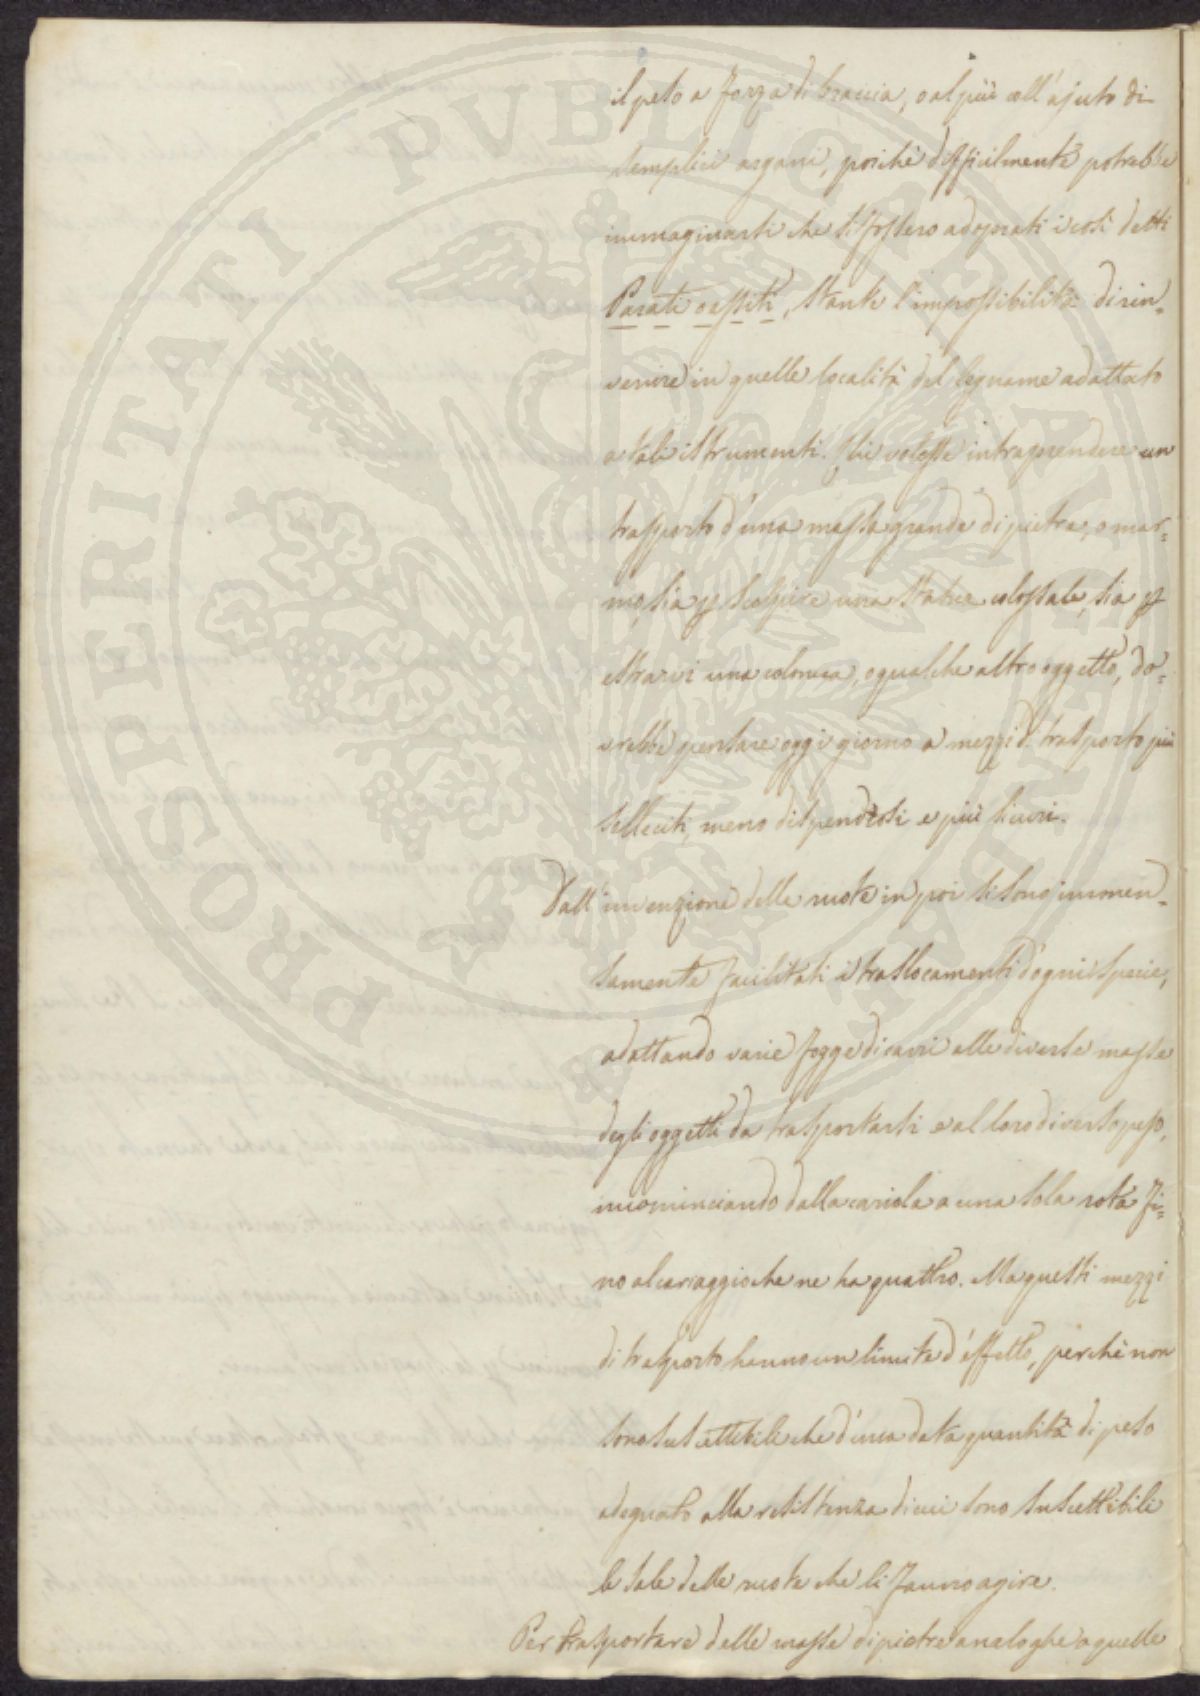 il peso a forza di braccia, o al più coll'ajuto di
semplici argani, poichè difficilmente potrebbe
immaginarsi che si fossero adoprati i così detti
Parati o assiti, stante l'impossibilità di rin-
venire in quelle località del legname adattato
a tali istrumenti. Chi volesse intraprendere un
trasporto d'una massa grande di pietra, o mar-
mo, sia p scolpire una statua colossale, sia p
estrarvi una colonna, o qualche altro oggetto, do-
vrebbe pensare oggi giorno a mezzi di trasporto più
solleciti, meno dispendiosi e più sicuri.
Dall'invenzione delle ruote in poi si sono immen-
samente facilitati i traslocamenti d'ogni specie,
adattando varie fogge di carri alle diverse masse
degli oggetti da trasportarsi e al loro diverso peso,
incominciando dalla cariola a una sola rota fi-
no al carraggio che ne ha quattro. Ma questi mezzi
di trasporto hanno un limite d'effetto, perchè non
sono suscettibili che d'una data quantità di peso
adeguato alla resistenza di cui sono suscettibili
le sale delle ruote che li fanno agire.
Per trasportare delle masse di pietre analoghe a quelle
PROSPERITATI PVBLICAE AVGENDAE